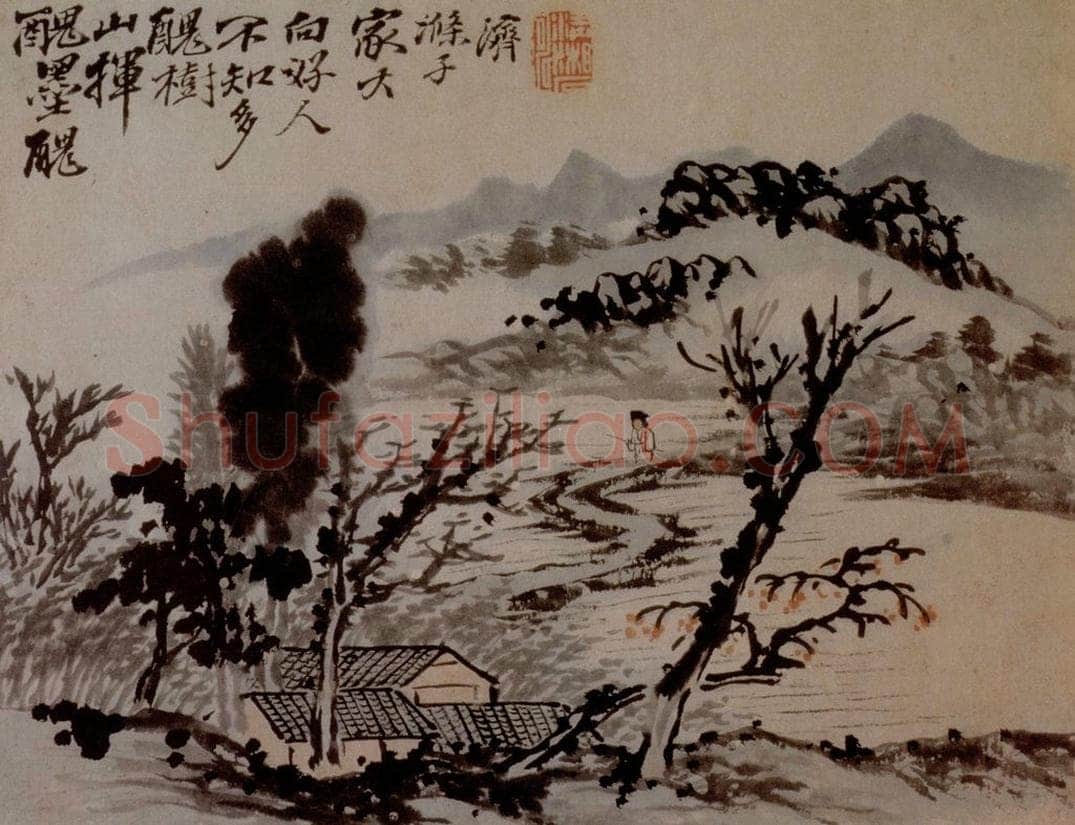 醜墨醜
山揮
醜樹
不知多
向好人
家大
滌子
濟
Shufaziliao.COM